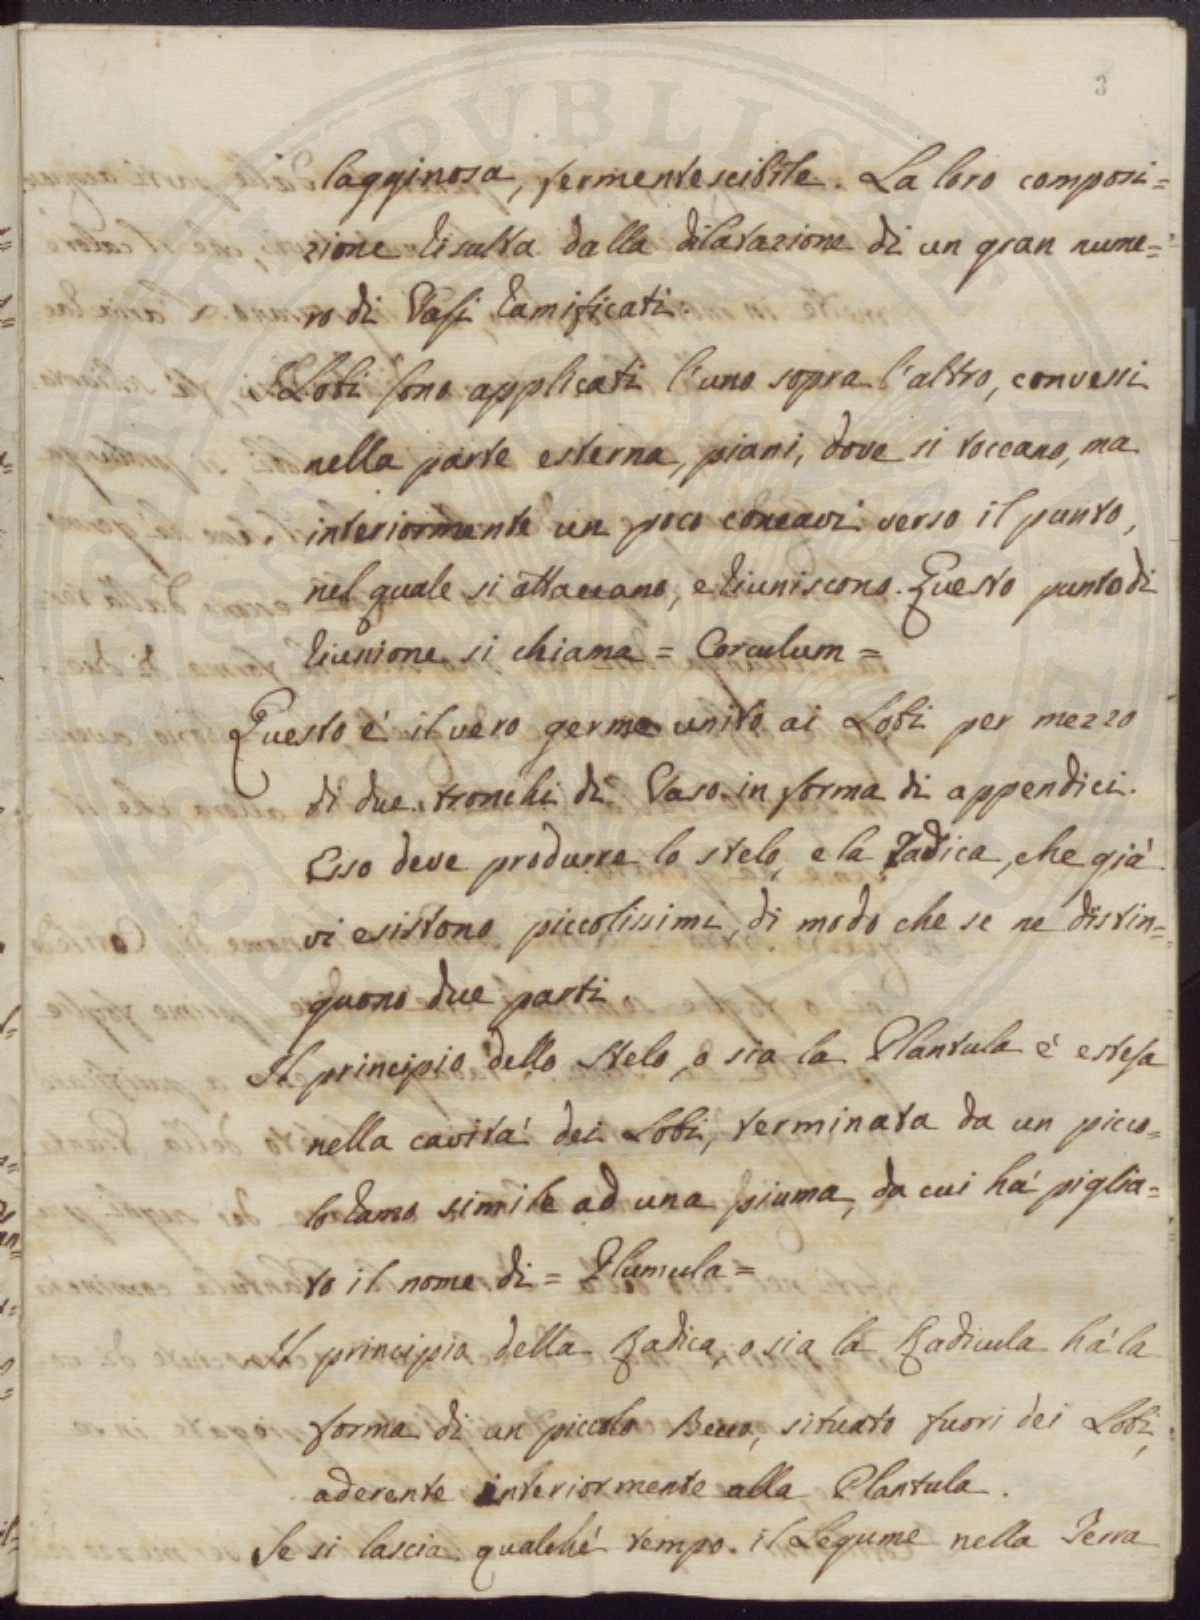 3
lagginosa, fermentescibile. La loro composi=
zione risulta dalla dilatazione di un gran nume=
ro di Vasi ramificati.
I Lobi sono applicati l'uno sopra l'altro, convessi
nella parte esterna, piani, dove si toccano, ma
interiormente un poco concavi verso il punto,
nel quale si attaccano, e riuniscono. Questo punto di
riunione si chiama = Corculum =
Questo é il vero germe unito ai Lobi per mezzo
di due tronchi di Vaso in forma di appendici.
Esso deve produrre lo stelo, e la Radica, che giá
vi esistono piccolissime, di modo che se ne distin=
guono due parti
Il principio dello Stelo, o sia la Plantula é estesa
nella cavitá dei Lobi, terminata da un picco=
lo ramo simile ad una piuma, da cui há piglia=
to il nome di = Plumula =
Il principio della Radica, o sia la Radicula há la
forma di un piccolo Becco, situato fuori dei Lobi,
aderente interiormente alla Plantula.
Se si lascia qualché tempo il Legume nella Terra